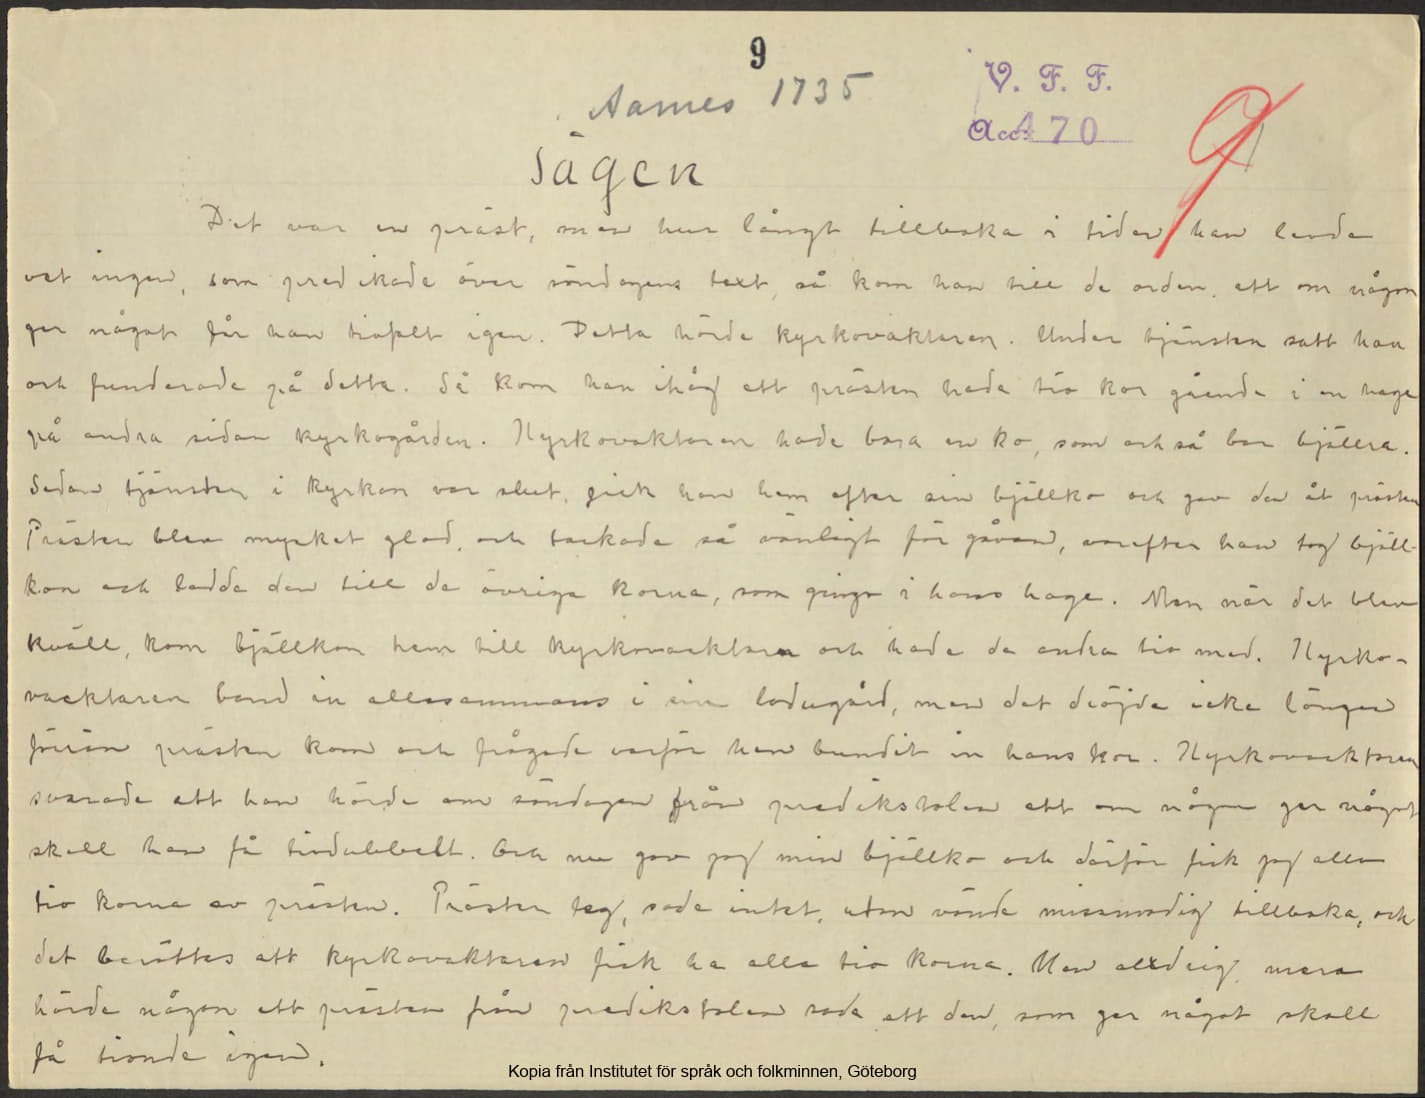 9
Aarnes 1735
V. F. F.
Acc. 470
Sägen
Det var en präst, men hur långt tillbaka i tiden han levde
vet ingen, som predikade över söndagens text, så kom han till de orden, att om någon
ger något får han tiofalt igen. Detta hörde kyrkovaktaren. Under tjänsten satt han
och funderade på detta. Så kom han ihåg att prästen hade tio kor gående i en hage
på andra sidan kyrkogården. Kyrkovaktaren hade bara en ko, som också bar bjällra.
Sedan tjänsten i kyrkan var slut, gick han hem efter sin bjällko och gav den åt prästen
Prästen blev mycket glad, och tackade så vänligt för gåvan, varefter han tog bjäll-
kon och ledde den till de övriga korna, som gingo i hans hage. Men när det blev
kväll, kom bjällkon hem till kyrkovaektaren och hade de andra tio med. Kyrko-
vaektaren band in allesammans i sin ladugård, men det dröjde icke länge
förrän prästen kom och frågade varför han bundit in hans kor. Kyrkovaektaren
svarade att han hörde om söndagen från predikstolen att om någon ger något
skall han få tiodubbelt. Och nu gav jag min bjällko och därför fick jag alla
tio korna av prästen. Prästen teg, sade intet, utan vände missmodig tillbaka, och
det berättas att kyrkovaktaren fick ha alla tio korna. Men aldrig mera
hörde någon att prästen från predikstolen sade att den, som ger något skall
få tionde igen.
Kopia från Institutet för språk och folkminnen, Göteborg